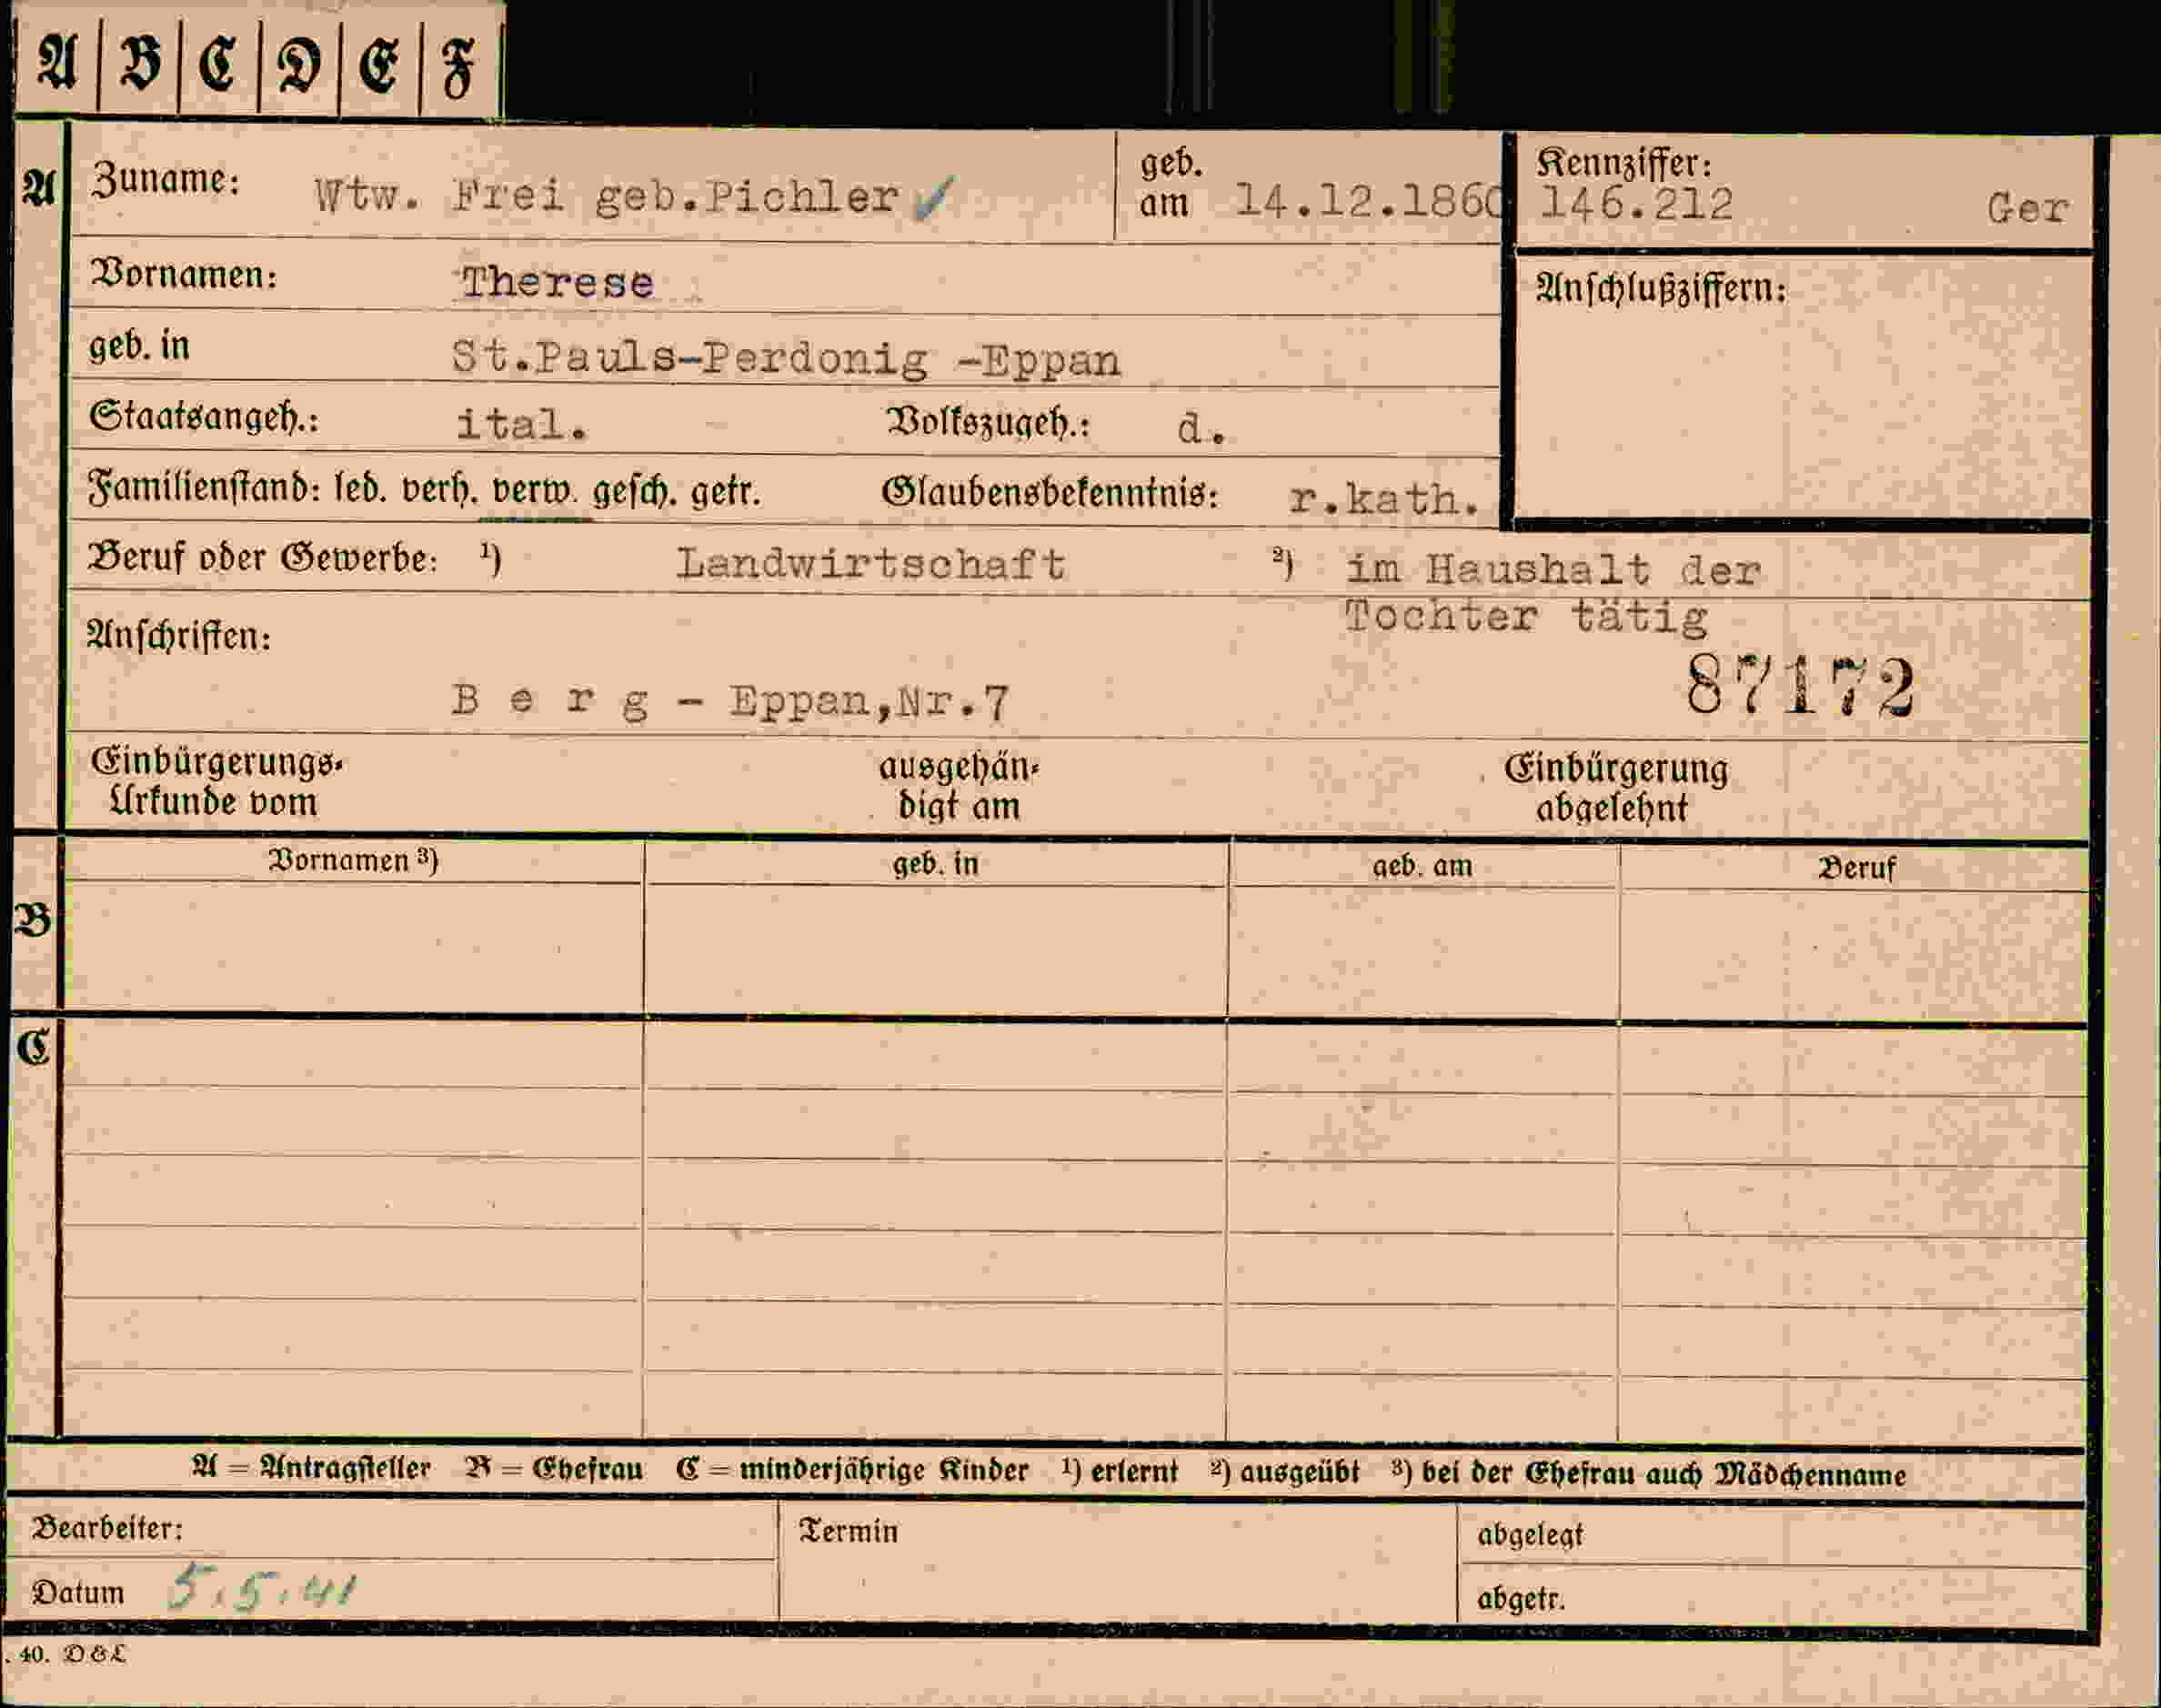 A B C D E F
A Zuname: Wtw. Frei geb.Pichler geb. am 14.12.1860 Kennziffer: 146.212 Ger
Vornamen: Therese Anschlußziffern:
geb. in St.Pauls-Perdonig -Eppan
Staatsangeh.: ital. Volkszugeh.: d.
Familienstand: led. verh. verw. gesch. getr. Glaubensbekenntnis: r.kath.
Beruf oder Gewerbe: 1) Landwirtschaft 2) im Haushalt der
Tochter tätig
Anschriften:
87172
B e r g - Eppan,Nr.7
Einbürgerungs- ausgehän- Einbürgerung
Urkunde vom digt am abgelehnt
Vornamen 3) geb. in geb. am Beruf
B
C
A = Antragsteller B = Ehefrau C = minderjährige Kinder 1) erlernt 2) ausgeübt 3) bei der Ehefrau auch Mädchenname
Bearbeiter: Termin abgelegt
Datum 5.5.41 abgetr.
. 40. D & L